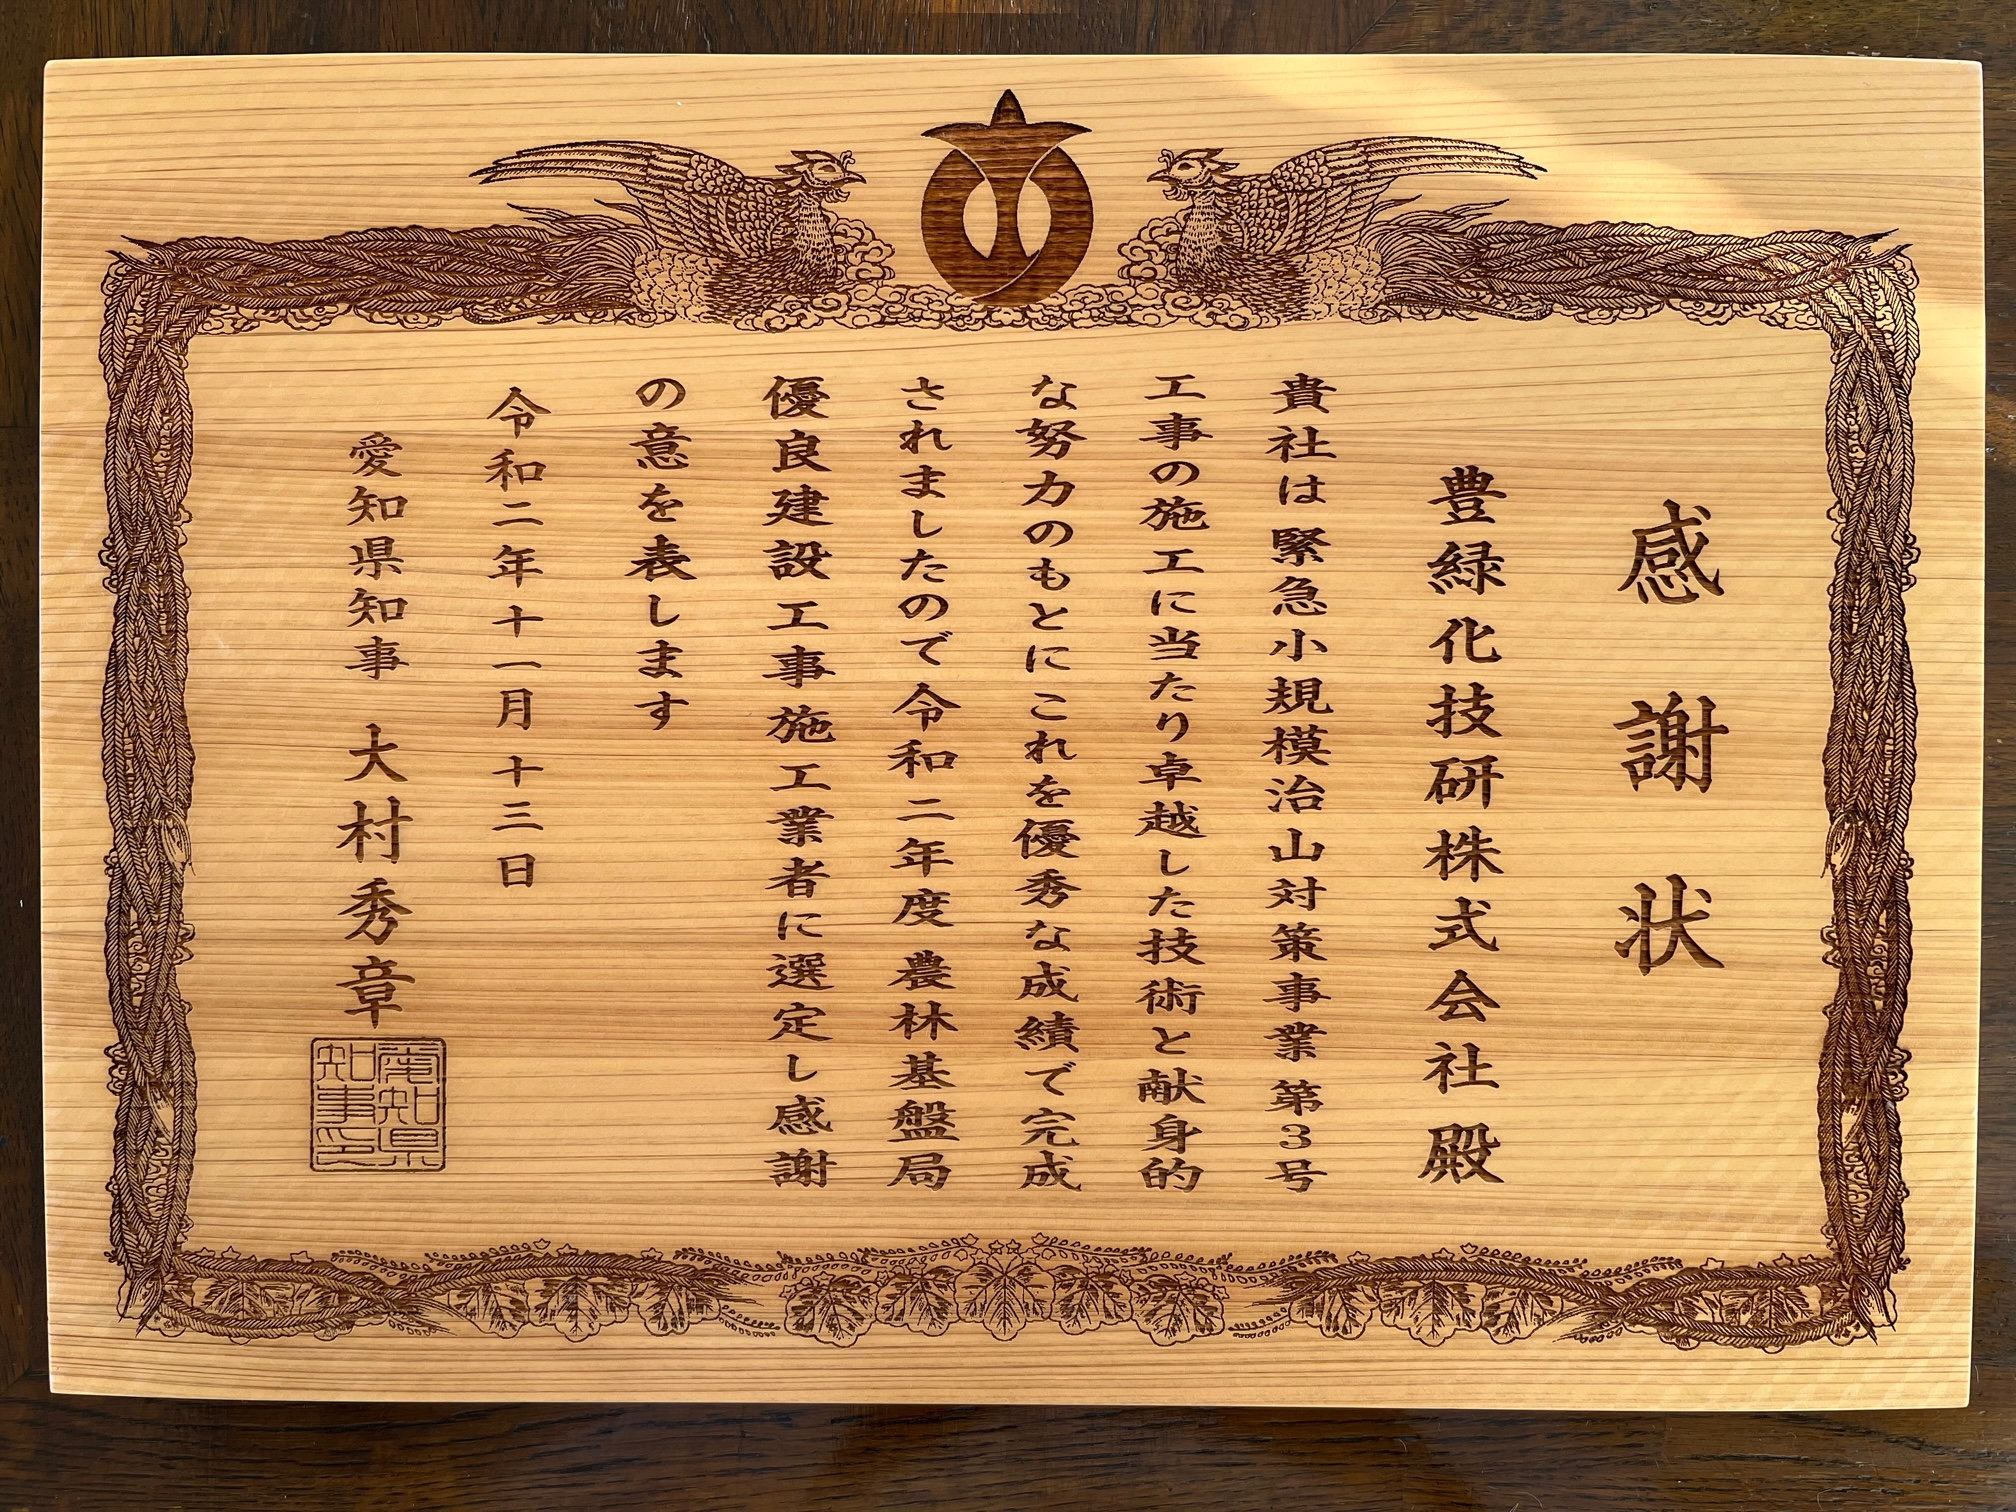 感謝状
豊緑化技研株式会社殿
貴社は緊急小規模治山対策事業 第3号
工事の施工に当たり卓越した技術と献身的
な努力のもとにこれを優秀な成績で完成
されましたので令和二年度 農林基盤局
優良建設工事施工業者に選定し感謝
の意を表します
令和二年十一月十三日
愛知県知事 大村秀章
愛知県
知事之印